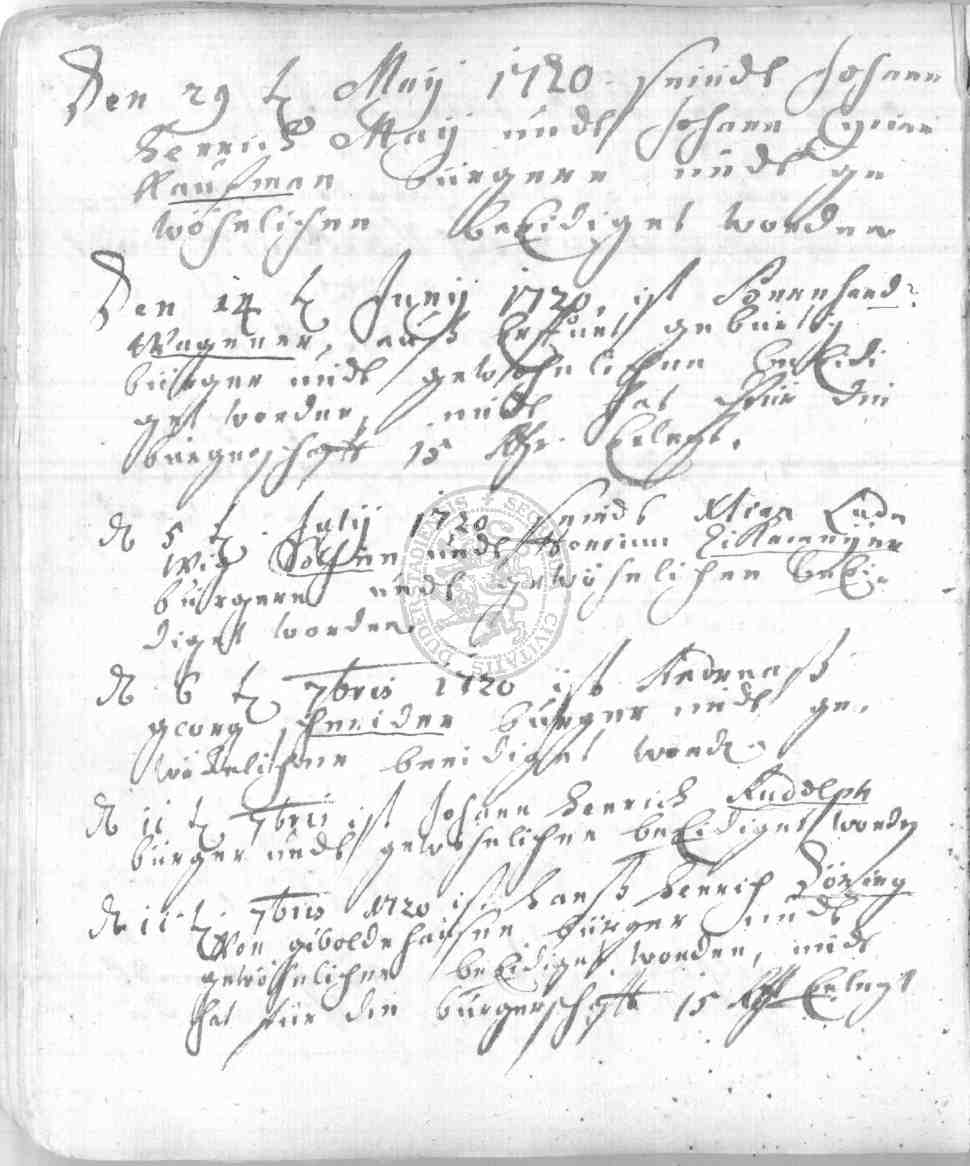 Den 29 t Maÿ 1720 seindt Johann
Henrich Maÿ undt Johann
Kaufman bürgere undt ge
wöhnlichen beEidiget worden
Den 14 t Junÿ 1720, ist Bernhard
Wagener, auß Erfurt gebürtig
bürger undt gewöhnlichen beEidi
get worden, undt hat für die
bürgerschafft 15 Rthr. Erlegt.
D 5 t. Julÿ 1720 seindt Xtian Lude
wig undt
bürgere undt gewöhnlichen beEi-
diget worden.
D 6 t 7bris 1720 ist Andreaß
georg bürger undt ge-
wöhnlichen beeidiget word.
D 11 t 7bris ist Johann Henrich Rudolph
bürger undt gewöhnlichen beEidiget worden
D 11 t. 7bris 1720 ist Hanß Henrich Döring
Von giboldehausen bürger undt
gewöhnlichen beEidiget worden, undt
hat für die bürgerschafft 15 Rthr Erlegt
SECRETUM CIVITATIS DUDERSTADIENSIS